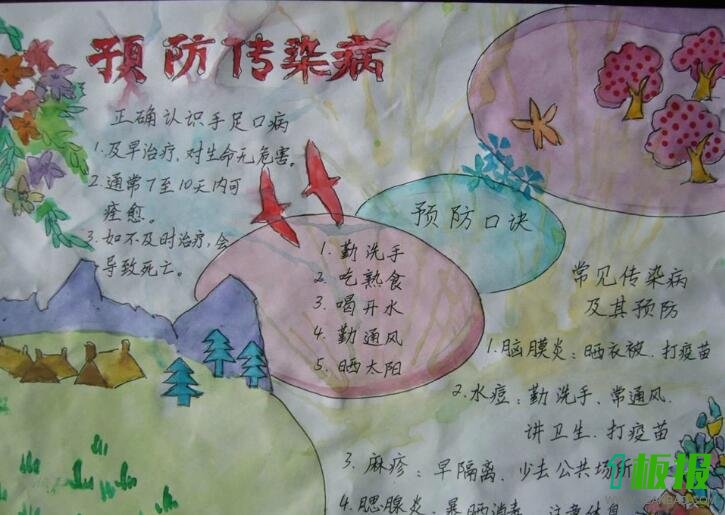 预防传染病
正确认识手足口病
1.及早治疗,对生命无危害。
2.通常7至10天内可
痊愈。
3.如不及时治疗,会
导致死亡。
预防口诀
1.勤洗手
2.吃熟食
3.喝开水
4.勤通风
5.晒太阳
常见传染病
及其预防
1.脑膜炎:晒衣被.打疫苗
2.水痘:勤洗手、常通风.
讲卫生.打疫苗
3.麻疹:早隔离.少去公共场所
4.腮腺炎:暴晒消毒.注意休息
板报